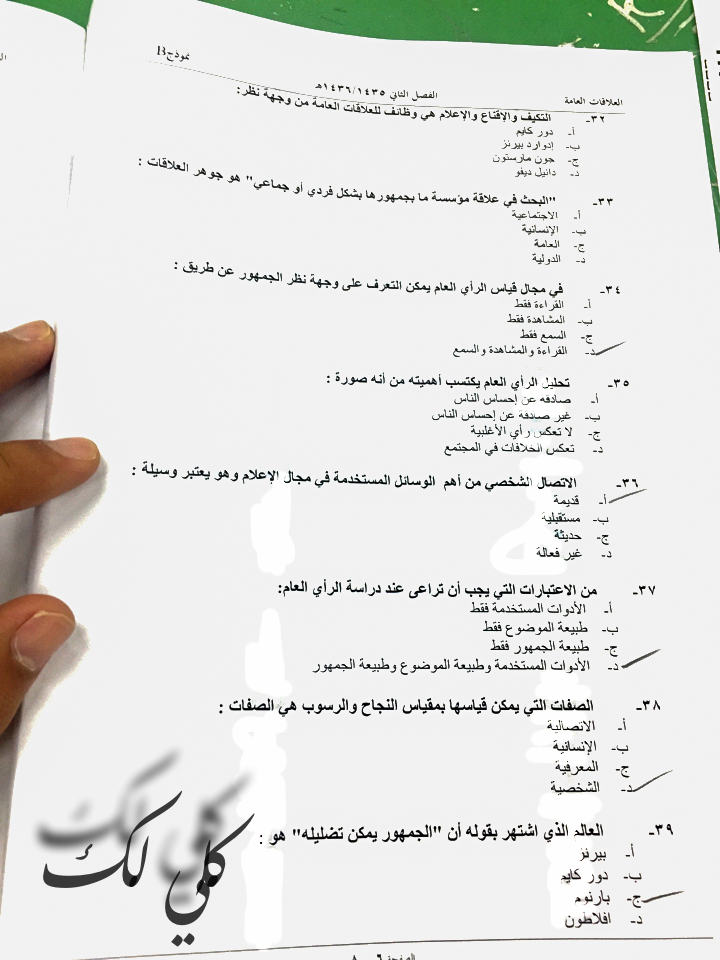 العلاقات العامة الفصل الثاني ١٤٣٦/١٤٣٥هـ نموذجB
٣٢- التكيف والإقناع والإعلام هي وظائف للعلاقات العامة من وجهة نظر:
أ- دور كايم
ب- إدوارد بيرنز
ج- جون مارستون
د- دانيل ديفو
٣٣- "البحث في علاقة مؤسسة ما بجمهورها بشكل فردي أو جماعي" هو جوهر العلاقات :
أ- الاجتماعية
ب- الإنسانية
ج- العامة
د- الدولية
٣٤- في مجال قياس الرأي العام يمكن التعرف على وجهة نظر الجمهور عن طريق :
أ- القراءة فقط
ب- المشاهدة فقط
ج- السمع فقط
د- القراءة والمشاهدة والسمع
٣٥- تحليل الرأي العام يكتسب أهميته من أنه صورة :
أ- صادقه عن إحساس الناس
ب- غير صادقة عن إحساس الناس
ج- لا تعكس رأي الأغلبية
د- تعكس الخلافات في المجتمع
٣٦- الاتصال الشخصي من أهم الوسائل المستخدمة في مجال الإعلام وهو يعتبر وسيلة :
أ- قديمة
ب- مستقبلية
ج- حديثة
د- غير فعالة
٣٧- من الاعتبارات التي يجب أن تراعى عند دراسة الرأي العام:
أ- الأدوات المستخدمة فقط
ب- طبيعة الموضوع فقط
ج- طبيعة الجمهور فقط
د- الأدوات المستخدمة وطبيعة الموضوع وطبيعة الجمهور
٣٨- الصفات التي يمكن قياسها بمقياس النجاح والرسوب هي الصفات :
أ- الاتصالية
ب- الإنسانية
ج- المعرفية
د- الشخصية
٣٩- العالم الذي اشتهر بقوله أن "الجمهور يمكن تضليله" هو :
أ- بيرنز
ب- دور كايم
ج- بارنوم
د- افلاطون
كلي لك